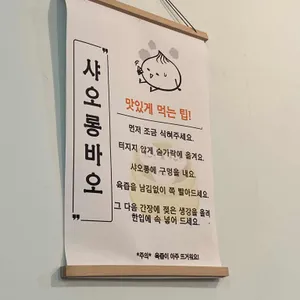 "샤오롱바오"
맛있게 먹는 팁!
먼저 조금 식혀주세요.
터지지 않게 숟가락에 옮겨요.
샤오롱에 구멍을 내요.
육즙을 남김없이 쪽 빨아드세요.
그 다음 간장에 젖은 생강을 올려
한입에 속 넣어 드세요.
*주의* 육즙이 아주 뜨거워요!